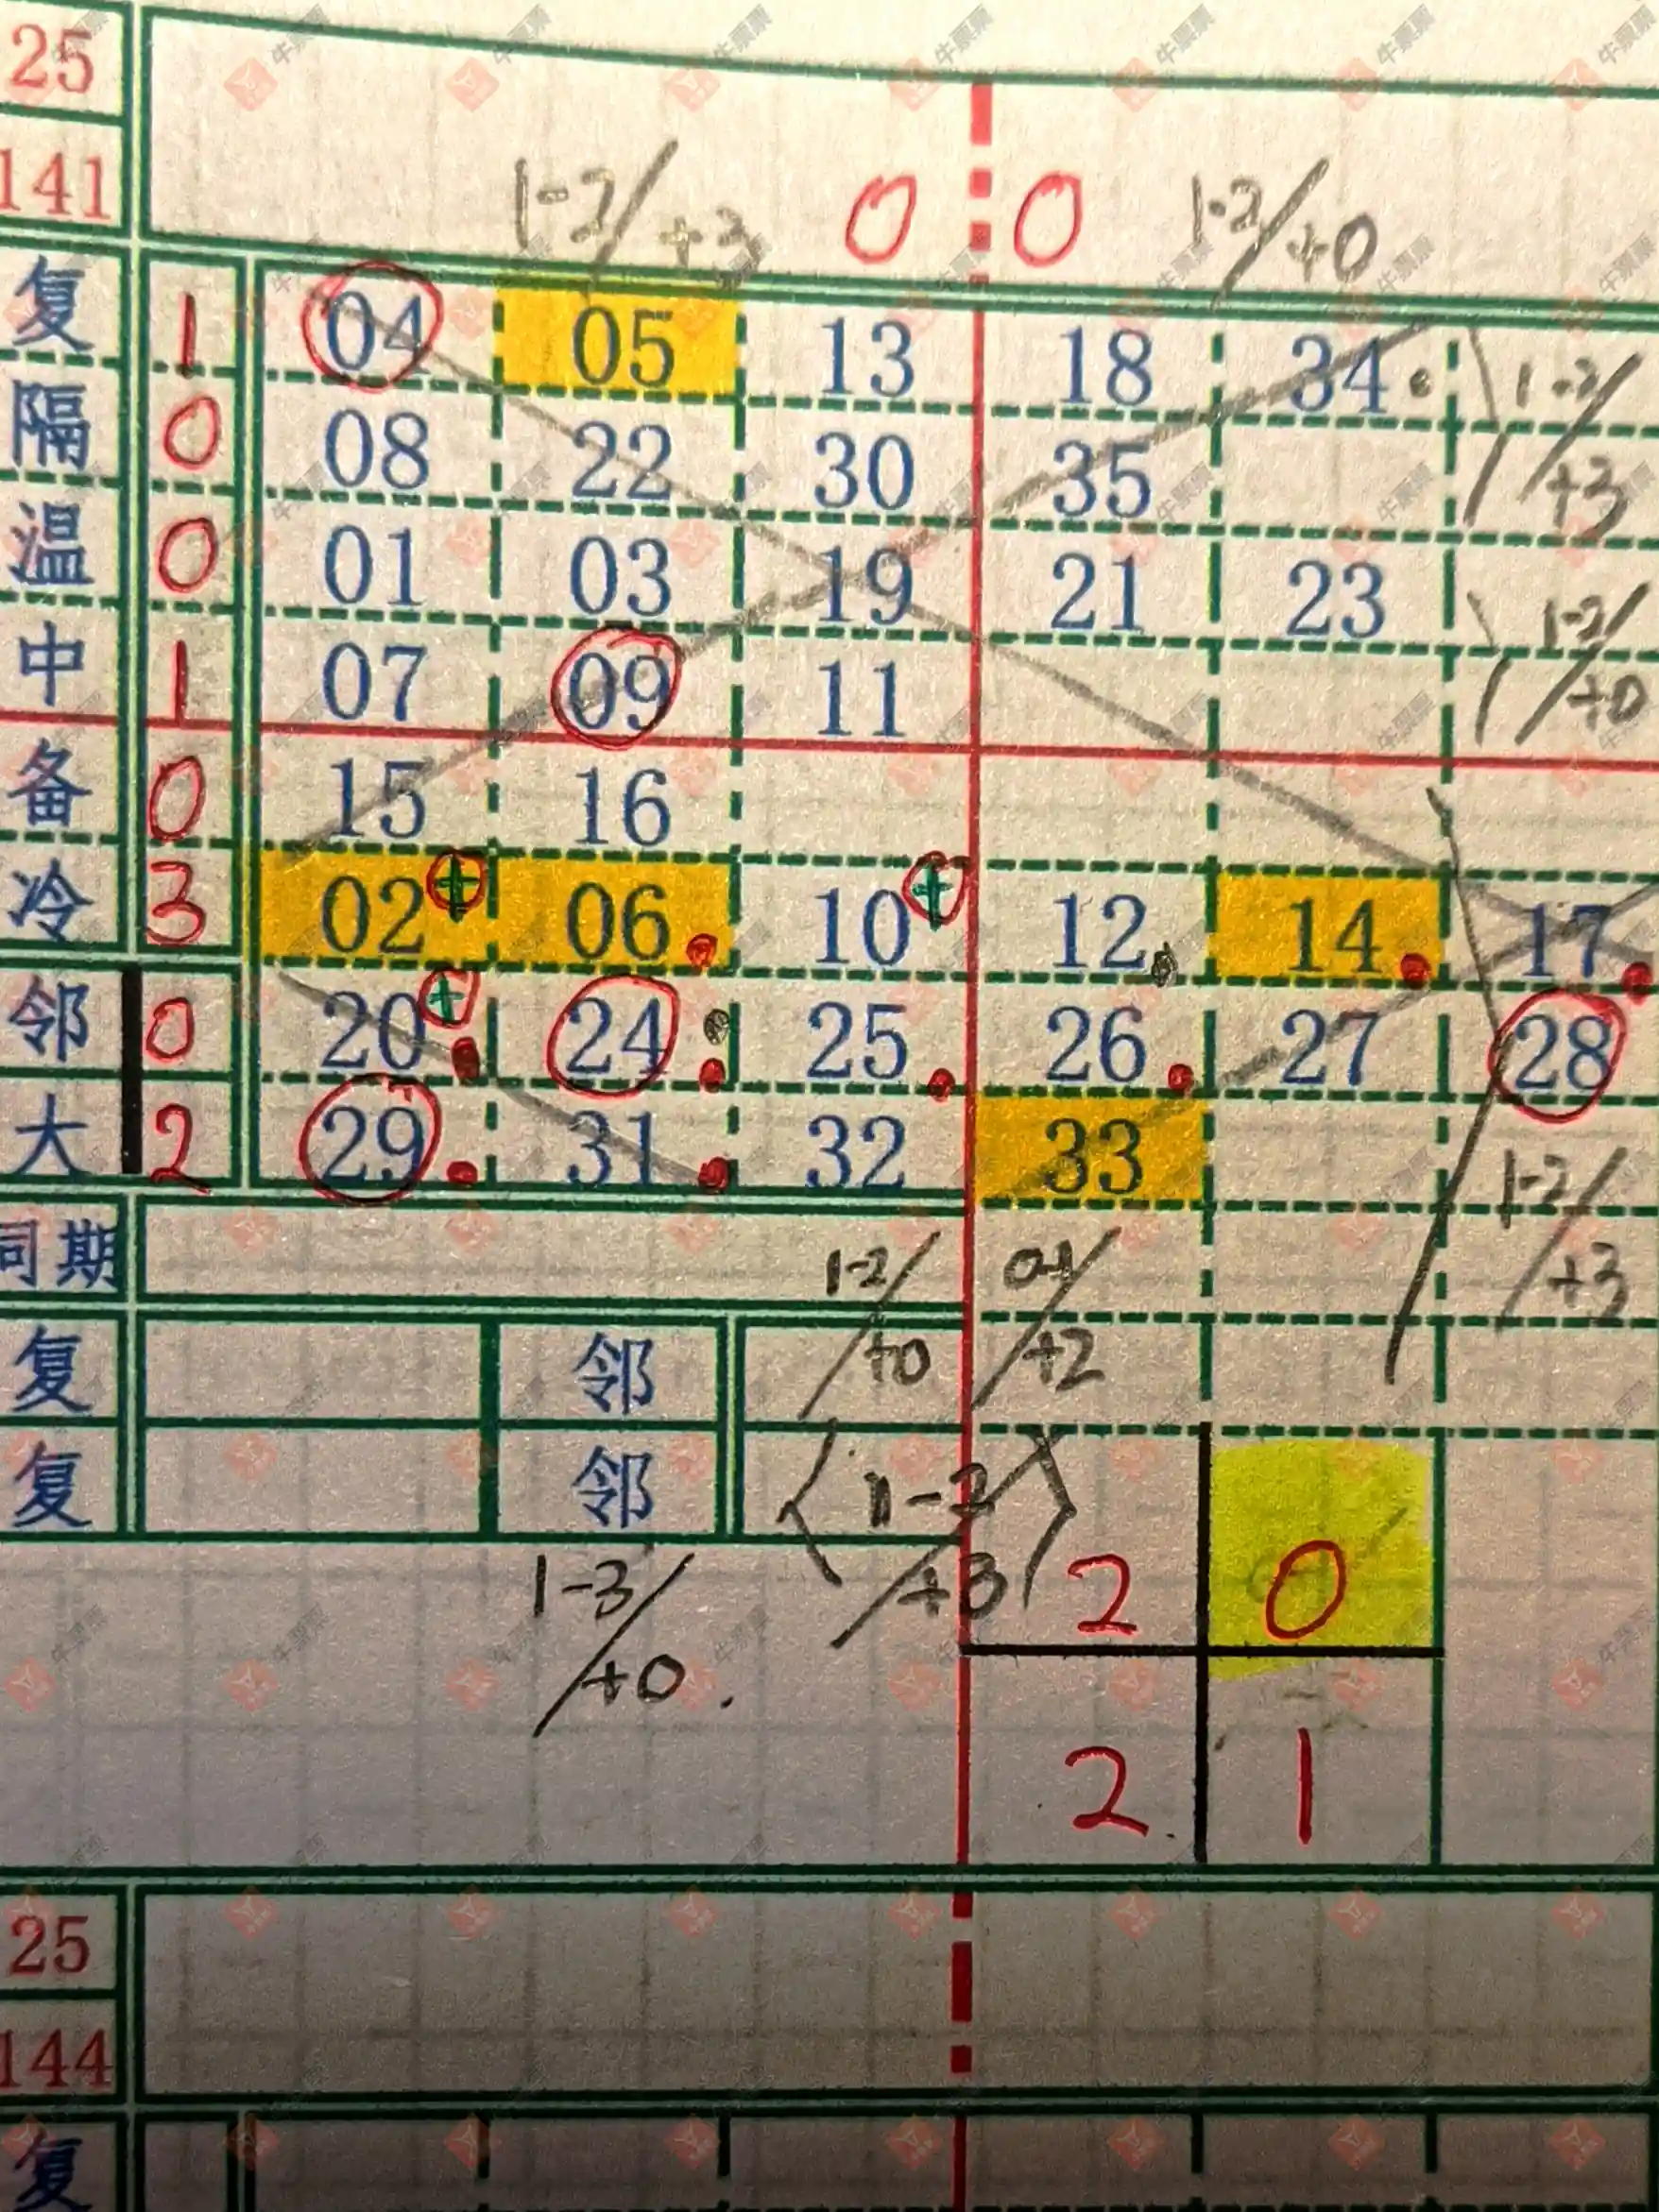 25
141
1-2/+3 0 0 1-2/+0
复 1 04 05 13 18 34
1-2/+3
隔 0 08 22 30 35
温 0 01 03 19 21 23
1-2/+0
中 1 07 09 11
备 0 15 16
冷 3 02 + 06 10 + 12 14 17
邻 0 20 + 24 25 26 27 28
大 2 29 31 32 33
1-2/+3
同期
1-2/+0 0-1/+2
复 邻
复 邻
1-2/+3
1-3/+0.
2 0
2 1
25
144
复
牛彩票